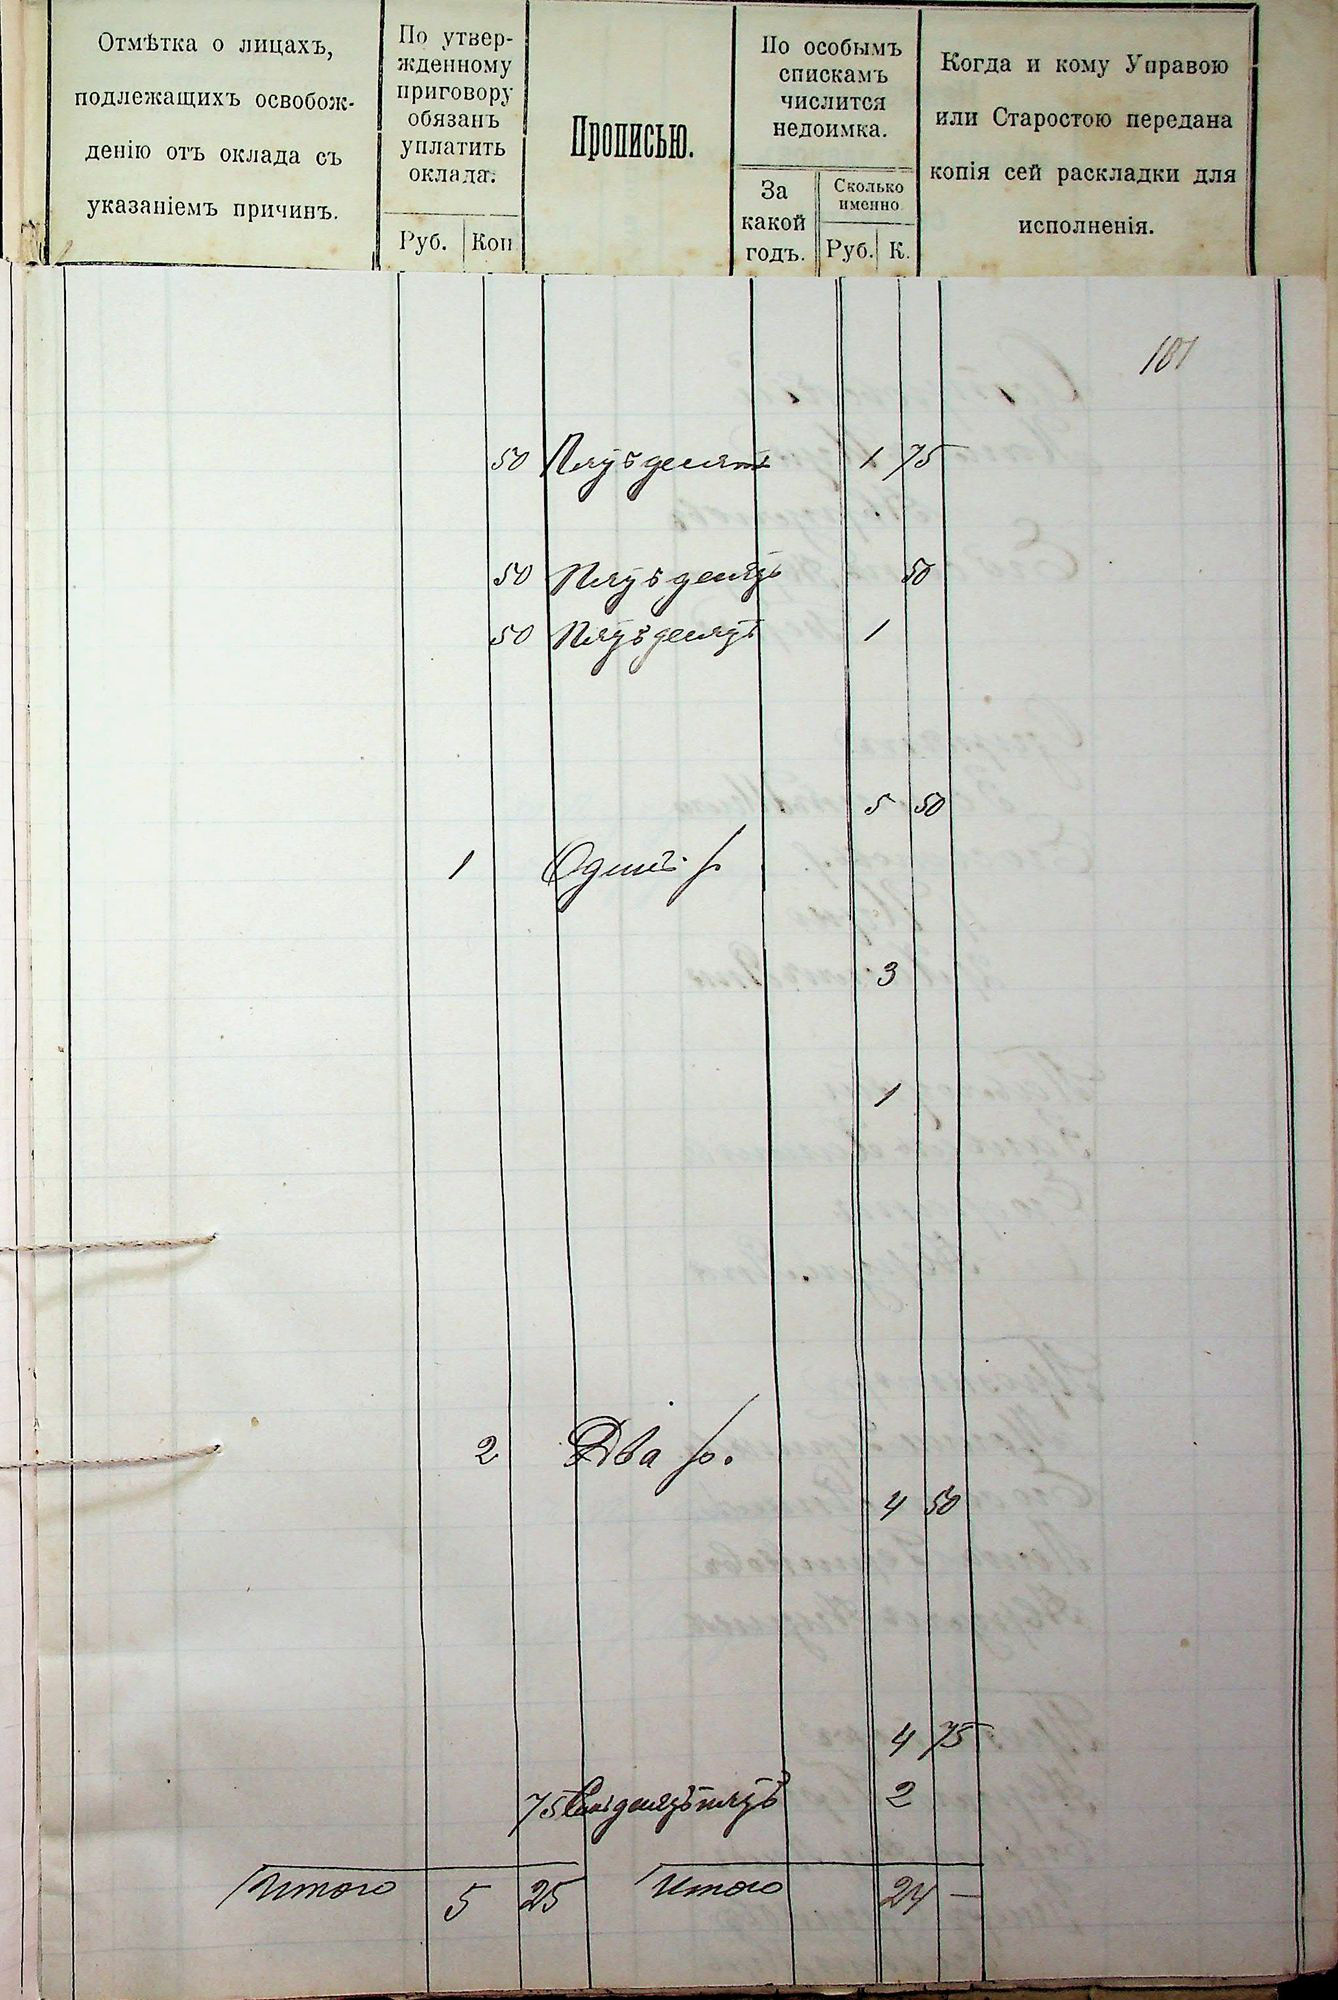 Отмѣтка о лицахъ,
подлежащихъ освобож-
денію отъ оклада съ
указаніемъ причинъ.
По утвер-
жденному
приговору
обязанъ
уплатить
оклада:
Руб. Коп
Прописью.
По особымъ
спискамъ
числится
недоимка.
За
какой
годъ.
Сколько
именно
Руб. К.
Когда и кому Управою
или Старостою передана
копія сей раскладки для
исполненія.
101
50 Пятьдесятъ 1 75
50 Пятьдесятъ 50
50 Пятьдесятъ 1
5 50
1 Одинъ р.
3
1
2 Два р.
4 50
4 75
75 Семьдесятъ пять 2
Итого 5 25 Итого 24 —